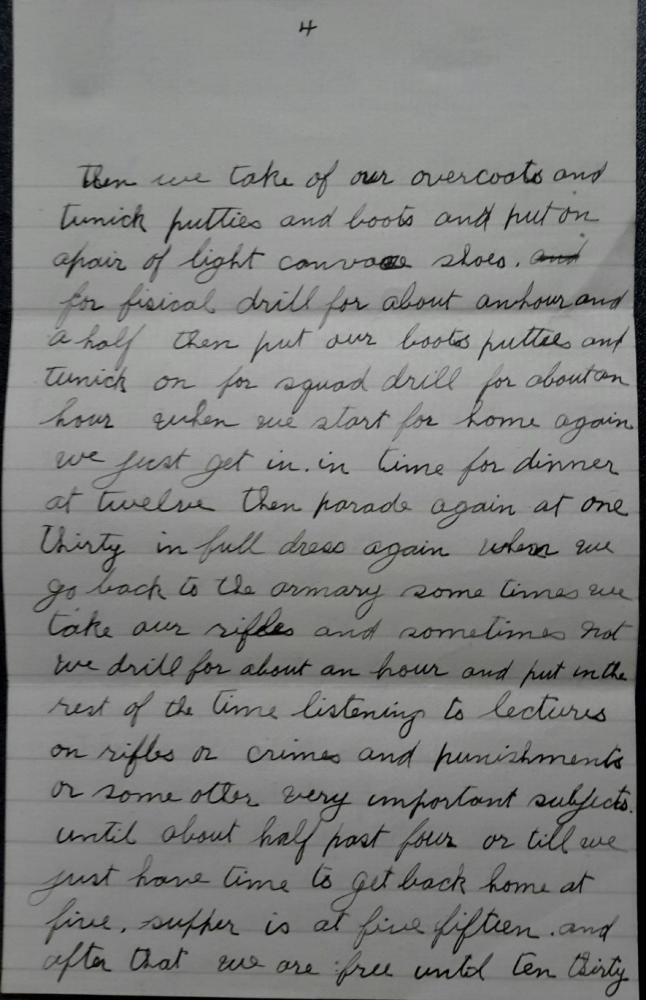 4
then we take of our overcoats and
tunick putties and boots and put on
a pair of light canvase shoes. and
for fisical drill for about an hour and
a half then put our boots putties and
tunick on for squad drill for about an
hour when we start for home again
we just get in. in time for dinner
at twelve then parade again at one
thirty in full dress again when we
go back to the armary some times we
take our rifles and sometimes not
we drill for about an hour and put in the
rest of the time listening to lectures
on rifles or crimes and punishments
or some otter very important subjects.
until about half past four or till we
just have time to get back home at
five. supper is at five fifteen. and
after that we are free until ten thirty